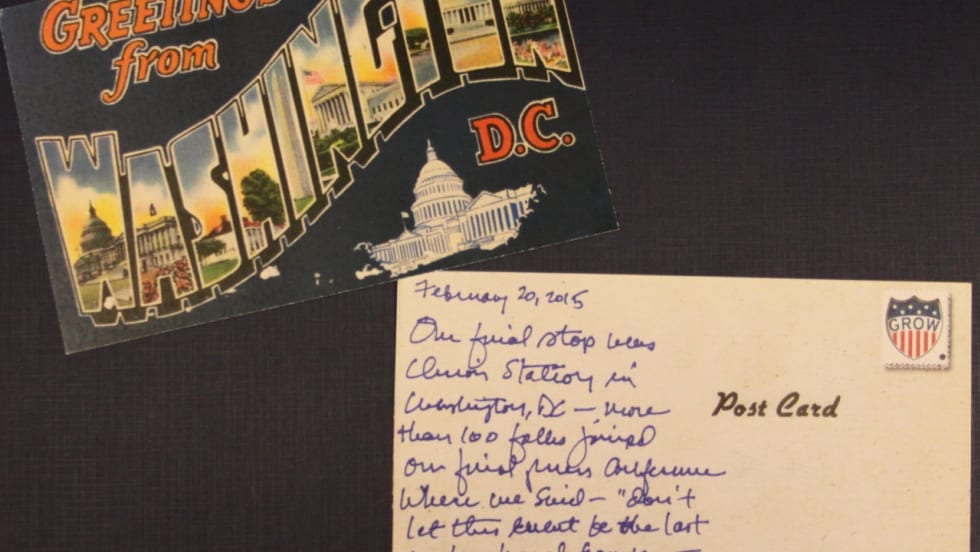 GREETINGS
from
WASHINGTON
D.C.
February 20, 2015
Our final stop was
Union Station in
Washington, DC – more
than 100 folks joined
our final press conference
where we said – "don't
let this event be the last
GROW
Post Card